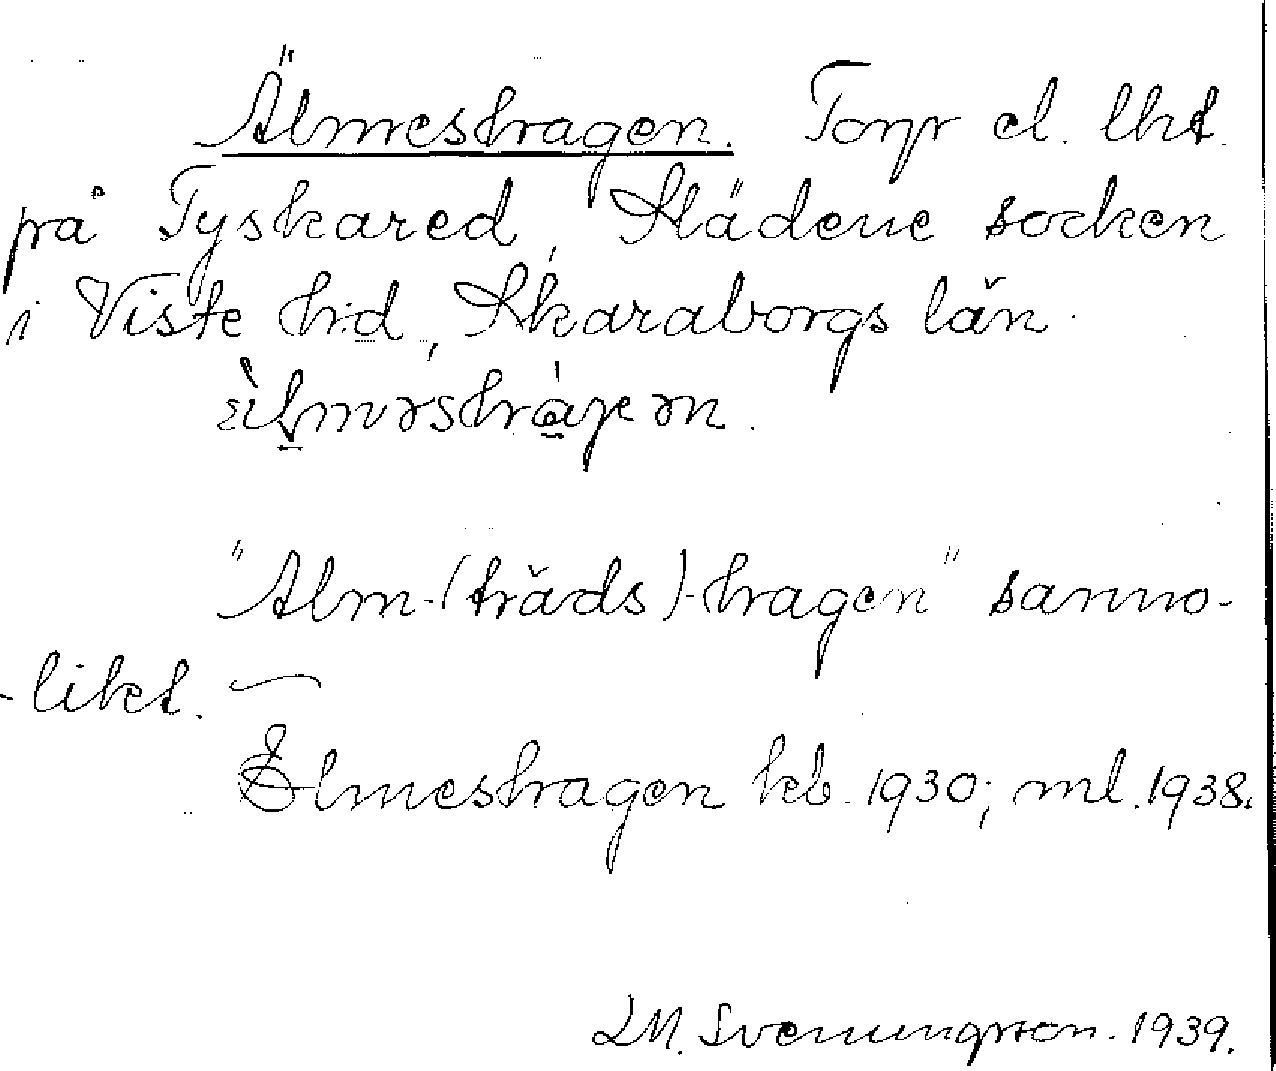 Älmeshagen. Torp el. lht
på Tyskared, Slädene socken
i Viste h:d, Skaraborgs län.
"Alm-(träds)-hagen" sanno-
-likt. —
Elmeshagen kb. 1930; ml. 1938.
LM. Svenungsson. 1939.